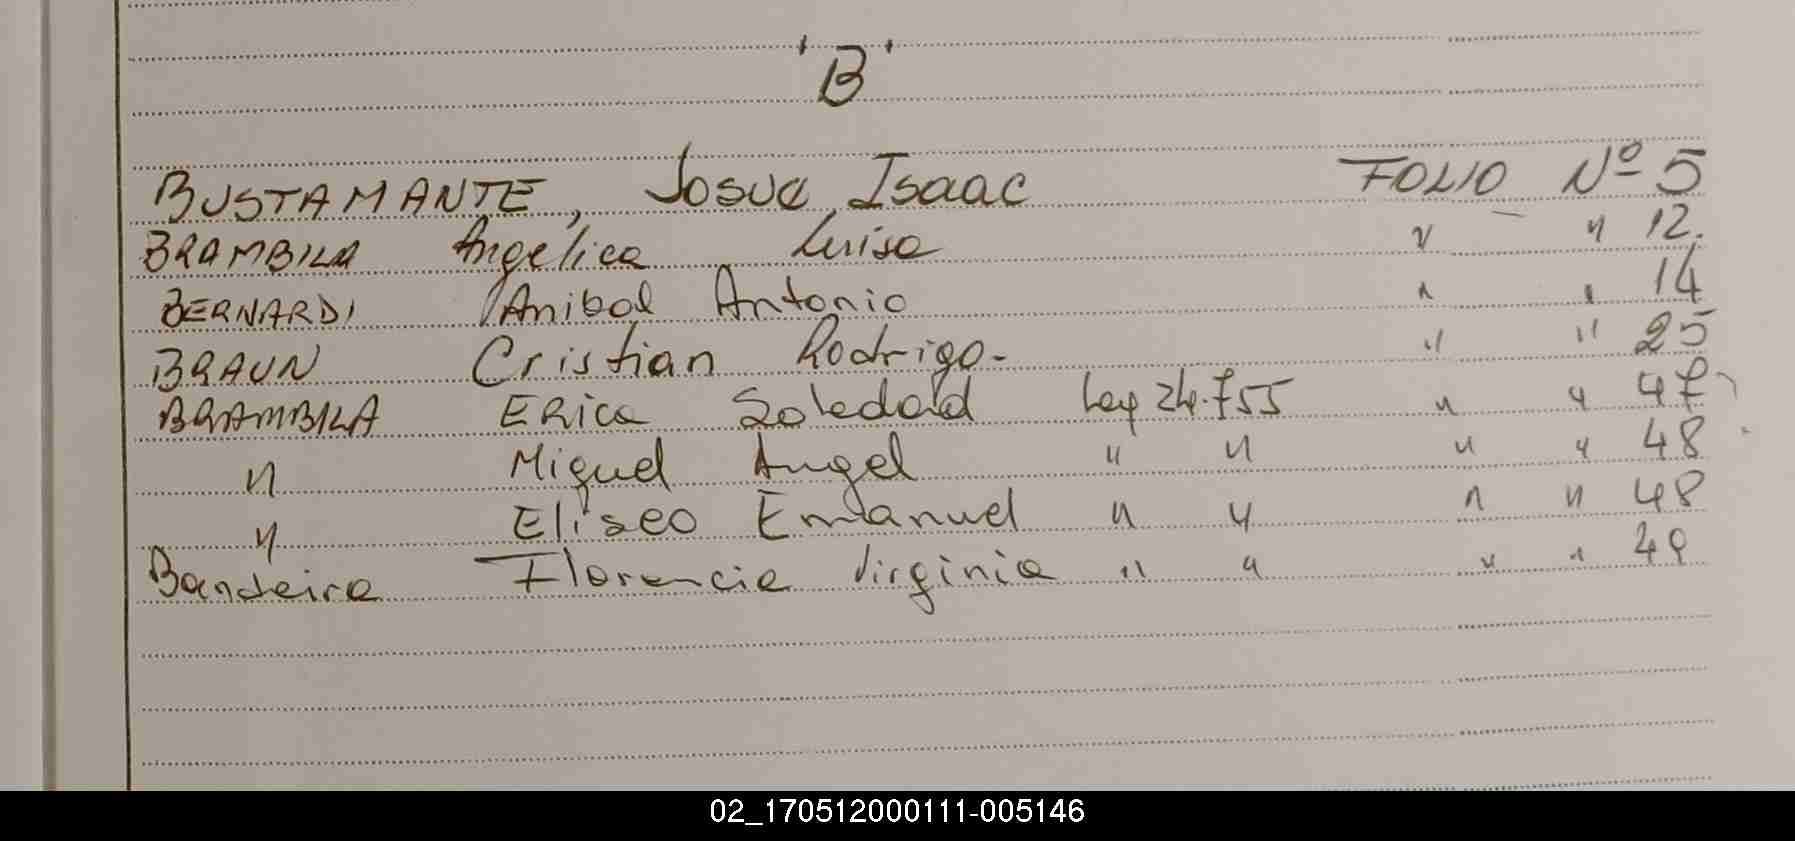 'B'
BUSTAMANTE, Josue Isaac FOLIO Nº 5
BRAMBILA Angelica Luisa " " 12.
BERNARDI Anibal Antonio " " 14
BRAUN Cristian Rodrigo- " " 25
BRAMBILA ERica Soledad Ley 24.755 " " 47
" Miguel Angel " " " " 48
" Eliseo Emanuel " " " " 48
Bandeira Florencia Virginia " " " " 49
02_170512000111-005146